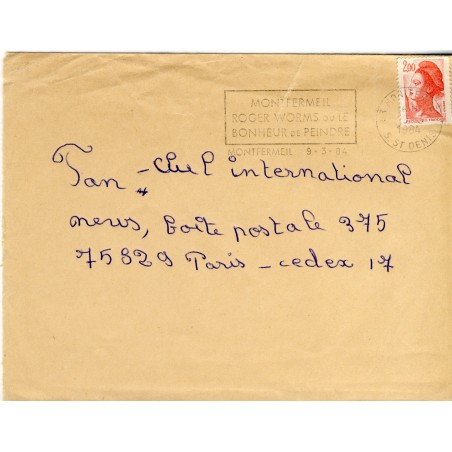 2,00
MONTFERMEIL
ROGER WORMS OU LE
BONHEUR DE PEINDRE
MONTFERMEIL 9-3-84
1984
S. ST DENIS
Fan-club international
news, Boite postale 375
75829 Paris-cedex 17